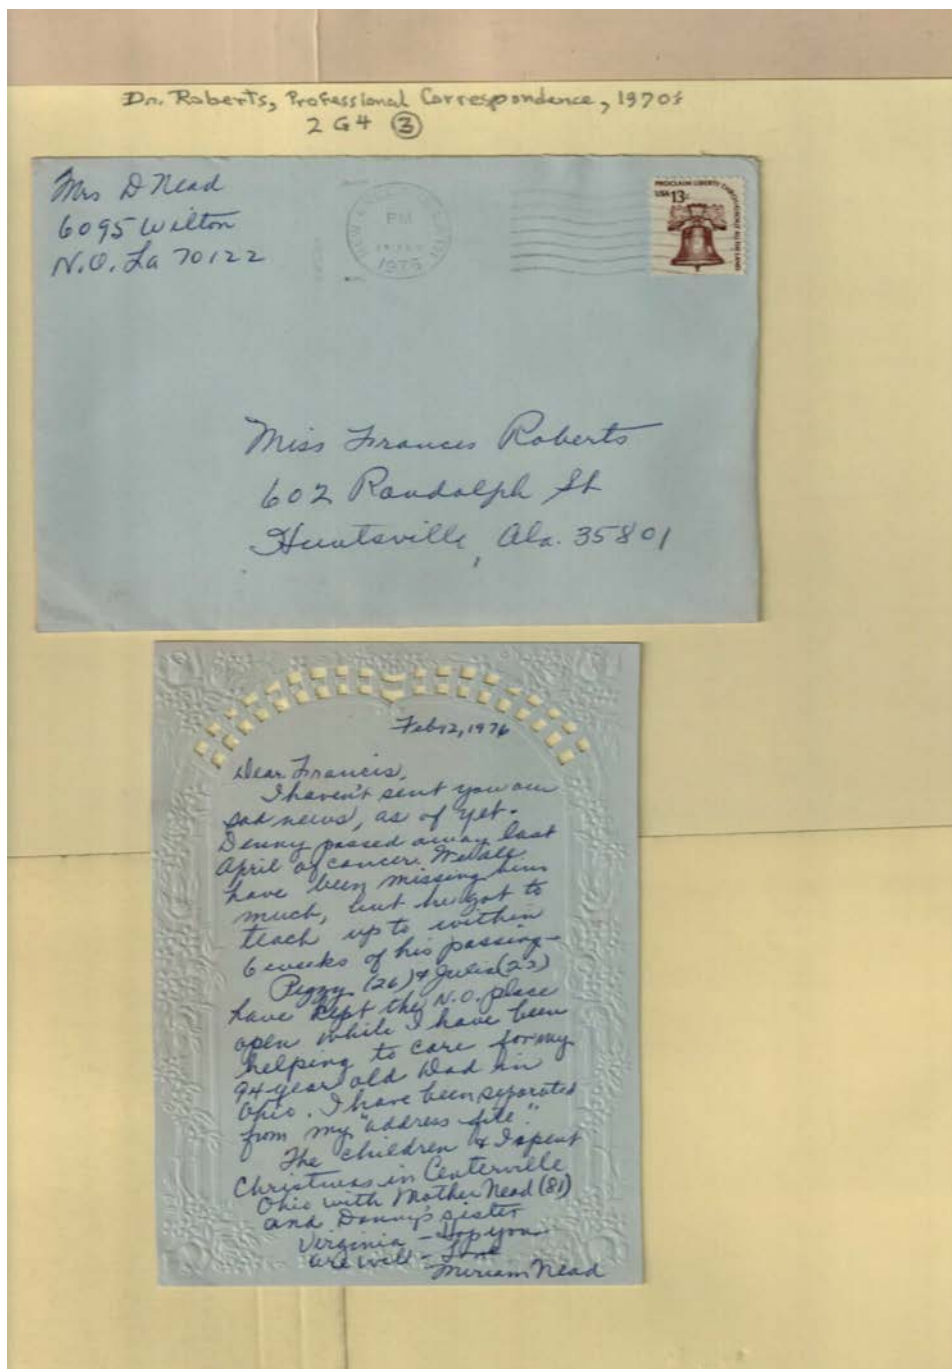 Dr. Roberts, Professional Correspondence, 1970s
2 G 4 ③
Mrs D Nead
6095 Wilton
N.O. La 70122
NEW
PM
1976
PROCLAIM LIBERTY THROUGHOUT ALL THE LAND
USA 13c
Miss Frances Roberts
602 Randolph St
Huntsville, Ala. 35801
Feb 12, 1976
Dear Francis,
I haven't sent you our
sad news, as of yet.
Denny passed away last
April of cancer. We all
have been missing him
much, but he got to
teach up to within
6 weeks of his passing—
Peggy (26) & Julia (23)
have kept the N.O. place
open while I have been
helping to care for my
94 year old Dad in
Ohio. I have been separated
from my "address file."
The children & I spent
Christmas in Centerville
Ohio with Mother Nead (81)
and Denny's sister
Virginia — Hop you
are well — Love
Miriam Nead